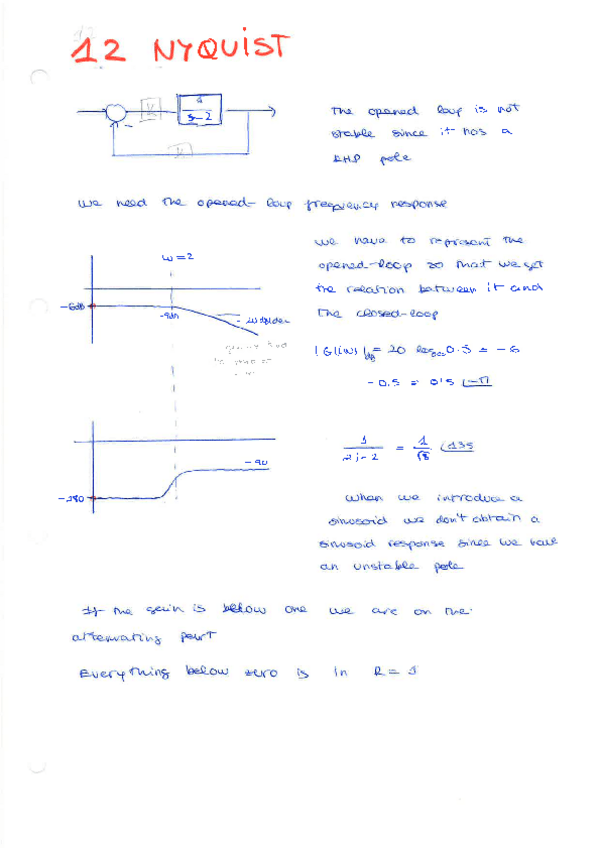 12 NYQUIST
K
s-2
K
The opened loop is not
stable since it has a
RHP pole
We need the opened-loop frequency response
We have to represent the
opened-loop so that we get
the relation between it and
The closed-loop
ω=2
-6dB
-9dB
|G(iω)|dB = 20 log 0.5 = -6
-0.5 = 0'5 ∠-π
1/2j-2 = 1/√8 ∠135
-90
-180
When we introduce a
sinusoid we don't obtain a
sinusoid response since we have
an unstable pole
If the gain is below one we are on the
attenuating part
Everything below zero is in R=1